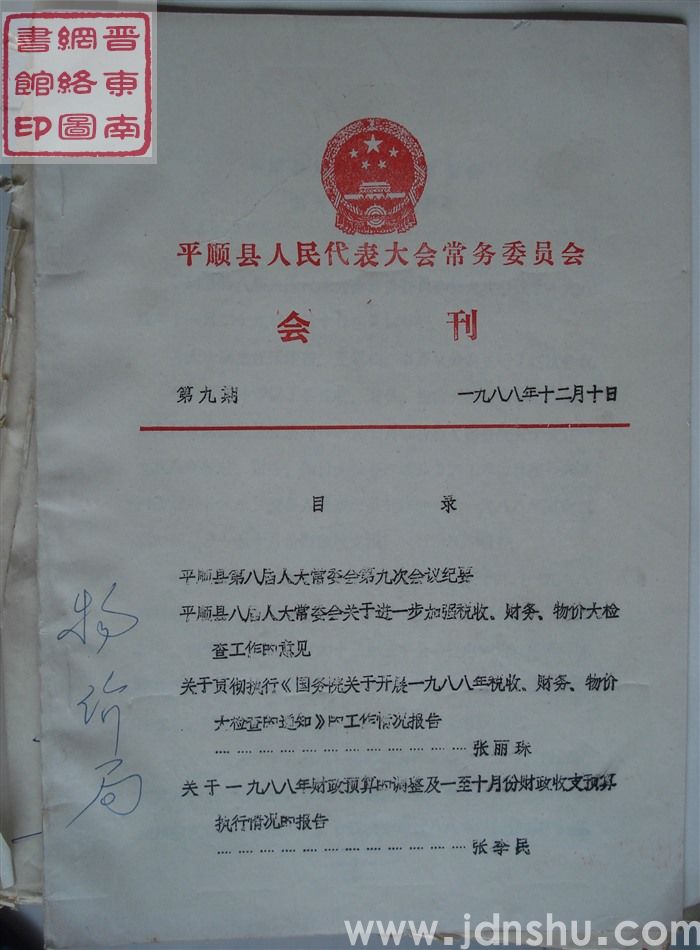 晋东南
網絡圖
書館印
平顺县人民代表大会常务委员会
会刊
第九期 一九八八年十二月十日
目录
平顺县第八届人大常委会第九次会议纪要
平顺县八届人大常委会关于进一步加强税收、财务、物价大检
查工作的意见
关于贯彻执行《国务院关于开展一九八八年税收、财务、物价
大检查的通知》的工作情况报告
………………………………张丽珠
关于一九八八年财政预算的调整及一至十月份财政收支预算
执行情况的报告
………………………………张李民
物价局
www.jdnshu.com